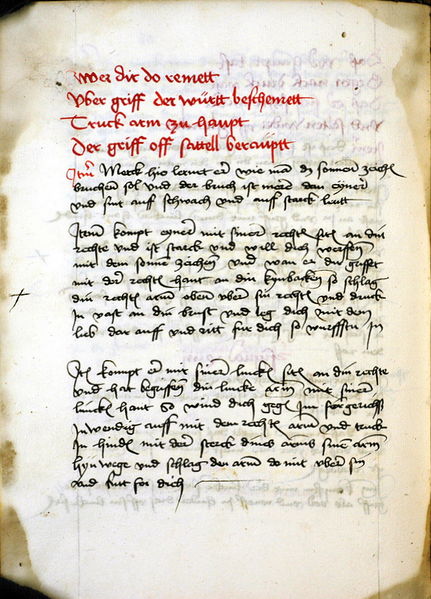 Wer dir do remett
Vber griff der württ beschemett
Truck arm zu haupt
Der griff off sattell beraüptt
Itm Merck hie lernet er wie mā dz sonnen zeichē
bruchen sol und der bruch ist mere dan eyner
und sint auff schwach und auff starck laut
Item kompt eyner mit siner rechtē sitē an din
rechte und ist starck und will dich werffen
mit dem sonnē zeichen und wan er din griffet
mit der rechtē hant an din kynbacken so schlag
din rechtē arm oben vber sin rechtē und druck
in vast an din brust und leg dich mit dem
lieb dar auff und ritt für dich so wurffstu in
Itē kompt er mit siner linckē sitē an din rechte
und hat begriffen din lincke arm mit siner
linckē hant so wind dich gegē im
inwendig auff mit dem rechtē arm und truck
in hindē mit der sterck dines arms sinē arm
hyn wege und schlag den arm do mit vber in
und ritt for dich